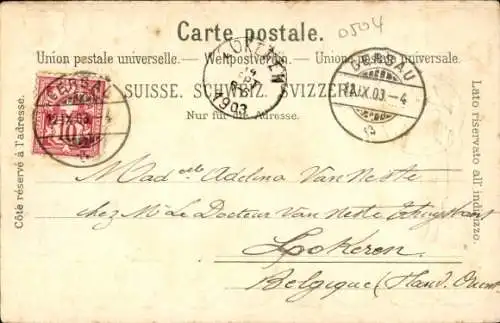 Carte postale.
0504
Union postale universelle. — Weltpostverein. — Unione postale universale.
SUISSE. SCHWEIZ. SVIZZERA.
Nur für die Adresse.
Côté réservé à l'adresse.
Lato riservato all'indirizzo.
GERSAU
12.IX.03.-4
10
LOKEREN
1903
GERSAU
12.IX.03.-4
Mad elle Adelina Van Neste
chez Mr Le Docteur Van Neste
Lokeren.
Belgique (Fland. Orient.